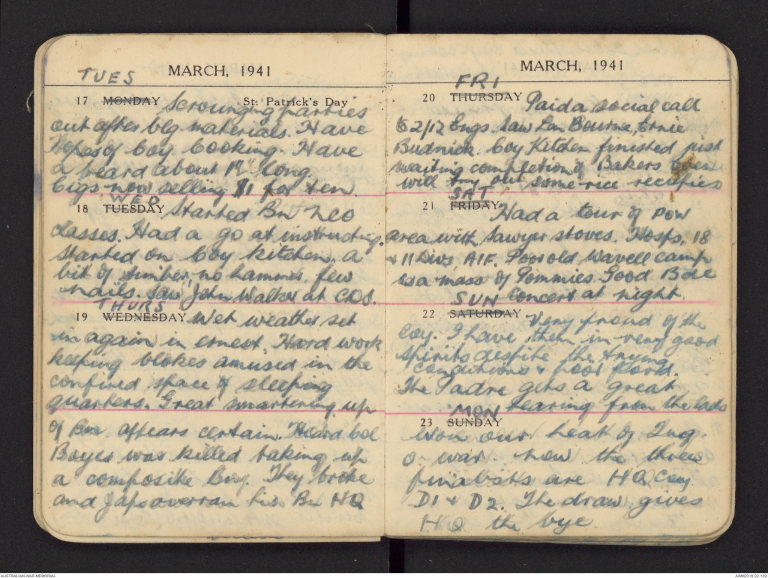 TUES
MARCH, 1941
17 MONDAY St. Patrick's Day
Scrounging parties
out after blg materials. Have
hopes of Coy Cooking. Have
a beard about 1" long.
Cigs now selling $1 for ten
WED
18 TUESDAY Started Bn NCO
classes. Had a go at instructing.
Started on Coy kitchen, a
bit of timber, no hammer, few
nails. Saw John Walker at CCS.
THURS
19 WEDNESDAY Wet weather set
in again in ernest. Hard work
keeping blokes amused in the
confined space of sleeping
quarters. Great smartening up
of Bn. appears certain. Heard Col
Boyes was killed taking up
a composite Bn. They broke
and Japs overran his Bn HQ
MARCH, 1941
FRI
20 THURSDAY Paid a social call
to 2/12 Engs. Saw Len Bourne, Ernie
Budnick. Coy Kitchen finished just
waiting completion of Bakers Oven
will try out some rice
SAT
21 FRIDAY Had a tour of POW
area with Sawyer stoves. Hosps, 18
& 11 Divs, AIF. Poor old Wavell camp
is a mass of Pommies. Good Bde
Concert at night.
SUN
22 SATURDAY Very proud of the
Coy. I have them in very good
spirits despite the trying
conditions & poor food.
The Padre gets a great
hearing from the lads
MON
23 SUNDAY
Won our heat of Tug.
o. war. now the three
finalists are HQ Coy
D1 & D2. The draw gives
HQ the bye.
AUSTRALIAN WAR MEMORIAL